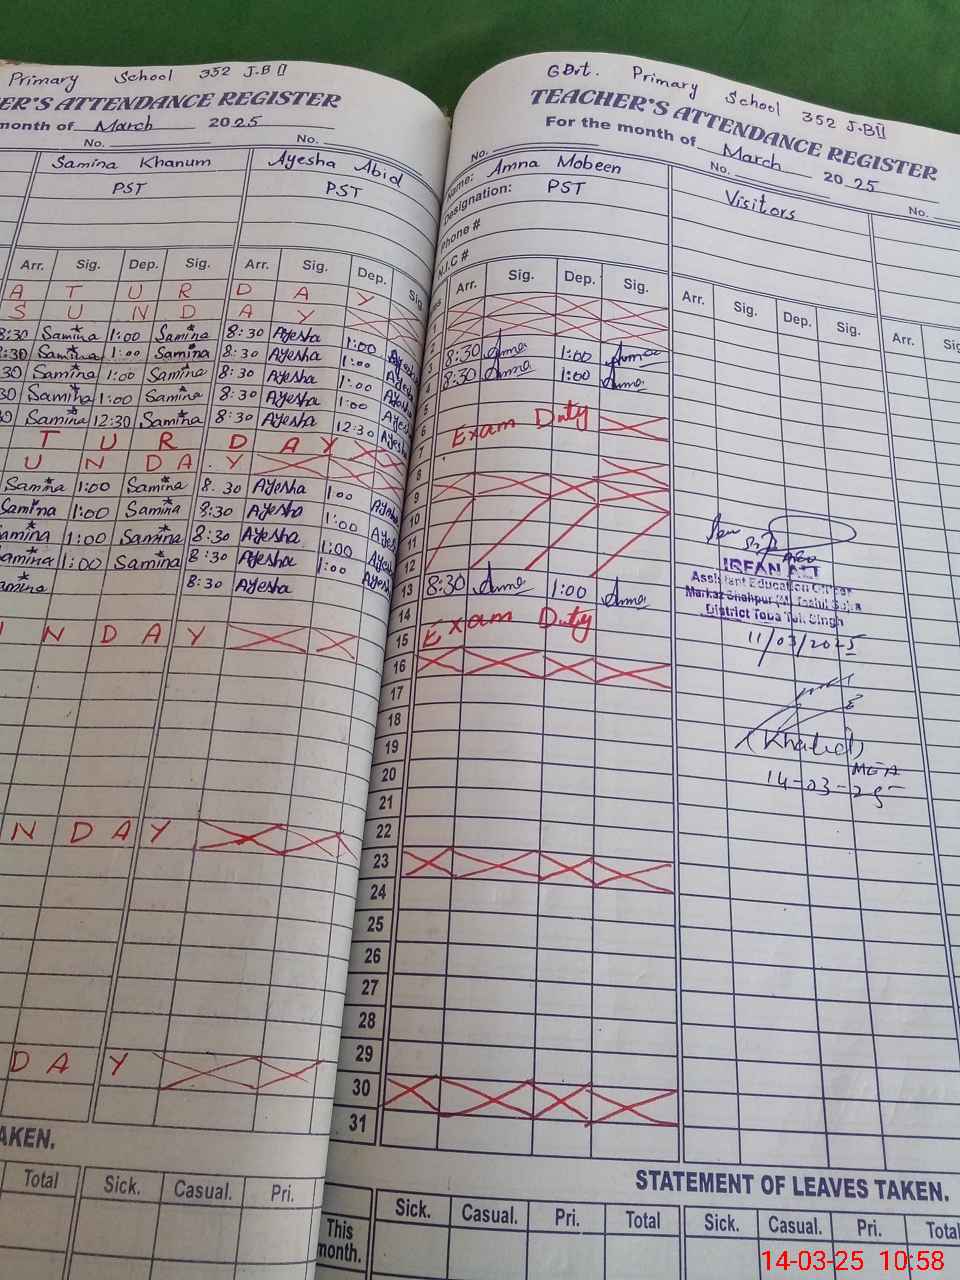 Primary School 352 J.B II
ER'S ATTENDANCE REGISTER
month of March 2025
No. No.
Samina Khanum Ayesha Abid
PST PST
Arr. Sig. Dep. Sig. Arr. Sig. Dep. Sig
A T U R D A Y
S U N D A Y
8:30 Samina 1:00 Samina 8:30 Ayesha 1:00 Ayesha
8:30 Samina 1:00 Samina 8:30 Ayesha 1:00 Ayesha
30 Samina 1:00 Samina 8:30 Ayesha 1:00 Ayesha
30 Samina 1:00 Samina 8:30 Ayesha 1:00 Ayesha
30 Samina 12:30 Samina 8:30 Ayesha 12:30 Ayesha
T U R D A Y
U N D A Y
Samina 1:00 Samina 8:30 Ayesha 1:00 Ayesha
Samina 1:00 Samina 8:30 Ayesha 1:00 Ayesha
Samina 1:00 Samina 8:30 Ayesha 1:00 Ayesha
Samina 1:00 Samina 8:30 Ayesha 1:00 Ayesha
Samina 8:30 Ayesha
N D A Y
N D A Y
D A Y
AKEN.
Total Sick. Casual. Pri.
Govt. Primary School 352 J.B II
TEACHER'S ATTENDANCE REGISTER
For the month of March 2025
No. No. No.
Name: Amna Mobeen Visitors
Designation: PST
Phone #
N.I.C #
Arr. Sig. Dep. Sig. Arr. Sig. Dep. Sig. Arr. Sig
1
2
3 8:30 Amna 1:00 Amna
4 8:30 Amna 1:00 Amna
5
6 Exam Duty
7
8
9
10
11
12
13 8:30 Amna 1:00 Amna
14 Exam Duty
15
16
17
18
19
20
21
22
23
24
25
26
27
28
29
30
31
IRFAN
Assistant Education Officer
Markaz Shahpur (M)
District Toba Tek Singh
11/03/2025
(Khalid)
MEA
14-03-25
STATEMENT OF LEAVES TAKEN.
Sick. Casual. Pri. Total Sick. Casual. Pri. Total
This month.
14-03-25 10:58